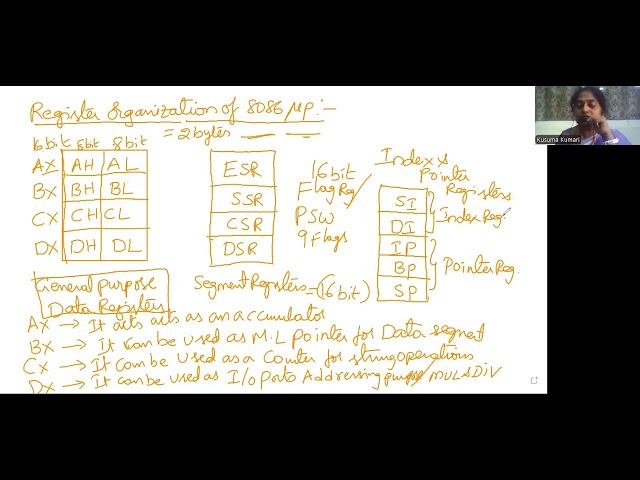 Register organization of 8086 μp:-
16bit 8bit 8bit = 2 bytes
AX AH AL
BX BH BL
CX CH CL
DX DH DL
General purpose
Data Registers
ESR
SSR
CSR
DSR
Segment Registers = (16 bit)
16 bit
Flag Reg
PSW
9 Flags
Index &
Pointer
Registers
SI
DI
IP
BP
SP
Index Reg.
Pointer Reg.
AX → It acts acts as an accumulator
BX → It can be used as M.L pointer for Data segment
CX → It can be used as a Counter for string operations
DX → It can be used as I/O Ports Addressing purpose MUL & DIV
Kusuma Kumari